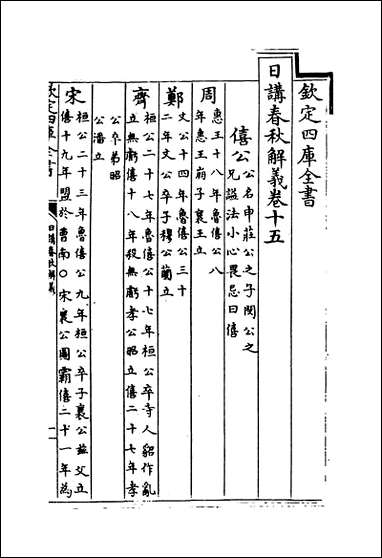 欽定四庫全書
日講春秋解義卷十五
僖公
公名申莊公之子閔公之
兄諡法小心畏忌曰僖
周
惠王十八年魯僖公八
年惠王崩子襄王立
鄭
文公十四年魯僖公三十
二年文公卒子穆公蘭立
齊
桓公二十七年魯僖公十七年桓公卒寺人貂作亂
立無虧僖十八年殺無虧孝公昭立僖二十七年孝
公卒弟昭
公潘立
宋
桓公二十三年魯僖公九年桓公卒子襄公茲父立
僖十九年盟於曹南○宋襄公圖霸僖二十一年為
欽定四庫全書
日講春秋解義
一